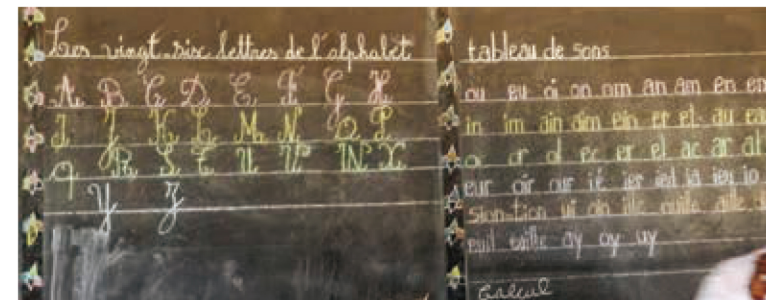 Les vingt-six lettres de l'alphabet
A B C D E F G H
I J K L M N O P
Q R S T U V W X
Y Z
tableau de sons
ou eu oi on om an am en em
in im ain aim ein er et au eau
or ol ec er el ac ar al
eur oir our ié ier ied ia ien io
sion-tion ui oin ille ouille aille
euil euille ay oy uy
Calcul